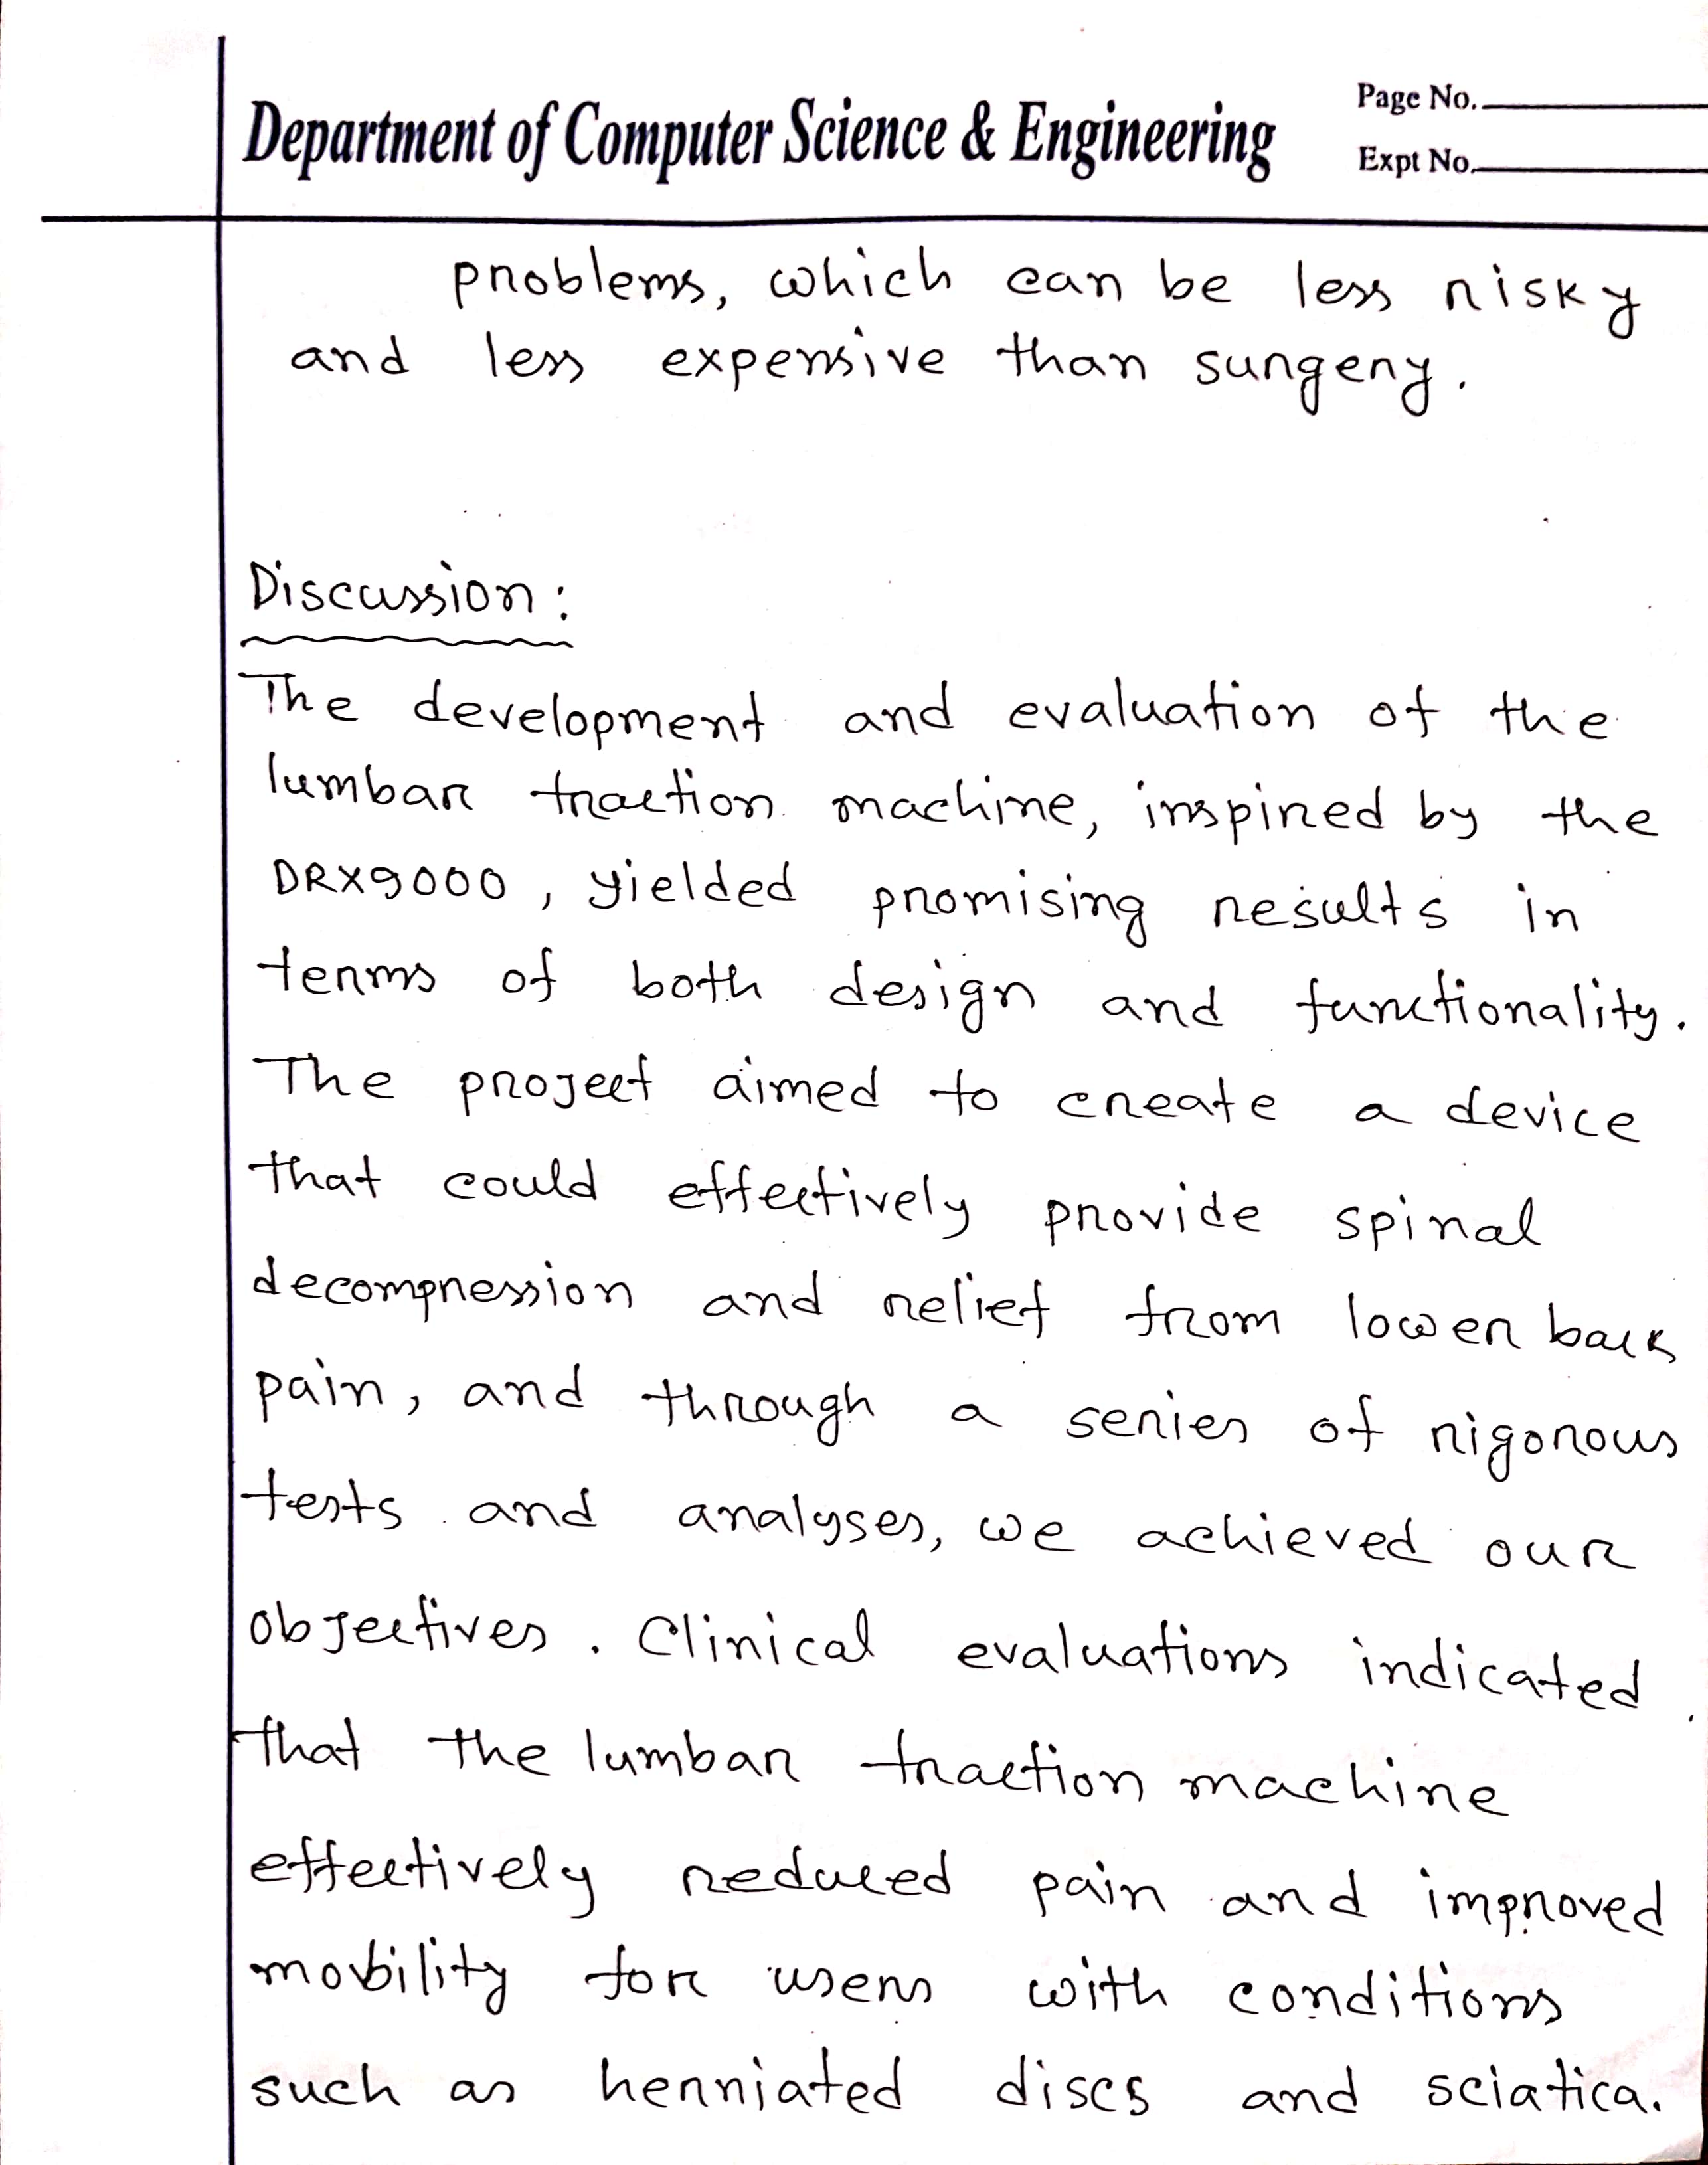 Department of Computer Science & Engineering
Page No.
Expt No.
problems, which can be less risky
and less expensive than surgery.
Discussion:
The development and evaluation of the
lumbar traction machine, inspired by the
DRX9000, yielded promising results in
terms of both design and functionality.
The project aimed to create a device
that could effectively provide spinal
decompression and relief from lower back
pain, and through a series of rigorous
tests and analyses, we achieved our
objectives. Clinical evaluations indicated
that the lumbar traction machine
effectively reduced pain and improved
mobility for users with conditions
such as herniated discs and sciatica.